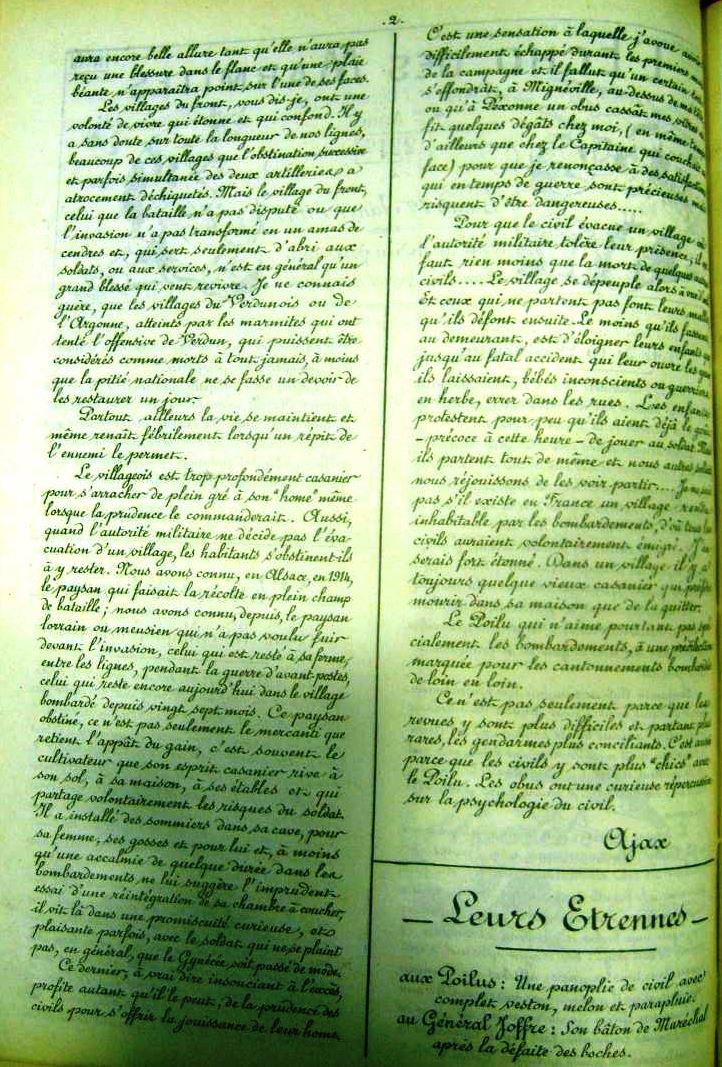 . 2 .
aura encore belle allure tant qu'elle n'aura pas
reçu une blessure dans le flanc et qu'une plaie
béante n'apparaîtra point sur l'une de ses faces.
Les villages du front, vous dis-je, ont une
volonté de vivre qui étonne et qui confond. Il y
a sans doute sur toute la longueur de nos lignes,
beaucoup de ces villages que l'obstination successive
et parfois simultanée des deux artilleries a
atrocement déchiquetés. Mais le village du front,
celui que la bataille n'a pas disputé ou que
l'invasion n'a pas transformé en un amas de
cendres et, qui sert seulement d'abri aux
soldats, ou aux services, n'est en général qu'un
grand blessé qui veut revivre. Je ne connais
guère, que les villages du Verdunois ou de
l'Argonne, atteints par les marmites qui ont
tenté l'offensive de Verdun, qui puissent être
considérés comme morts à tout jamais, à moins
que la pitié nationale ne se fasse un devoir de
les restaurer un jour.
Partout ailleurs la vie se maintient et
même renaît fébrilement lorsqu'un répit de
l'ennemi le permet.
Le villageois est trop profondément casanier
pour s'arracher de plein gré à son "home" même
lorsque la prudence le commanderait. Aussi,
quand l'autorité militaire ne décide pas l'éva-
cuation d'un village, les habitants s'obstinent-ils
à y rester. Nous avons connu, en Alsace, en 1914,
le paysan qui faisait la récolte en plein champ
de bataille ; nous avons connu, depuis, le paysan
lorrain ou meusien qui n'a pas voulu fuir
devant l'invasion, celui qui est resté à sa ferme,
entre les lignes, pendant la guerre d'avant-postes,
celui qui reste encore aujourd'hui dans le village
bombardé depuis vingt sept mois. Ce paysan
obstiné, ce n'est pas seulement le mercanti que
retient l'appât du gain, c'est souvent le
cultivateur que son esprit casanier rive à
son sol, à sa maison, à ses étables et qui
partage volontairement les risques du soldat.
Il a installé des sommiers dans sa cave, pour
sa femme, ses gosses et pour lui et, à moins
qu'une accalmie de quelque durée dans les
bombardements ne lui suggère l'imprudent
essai d'une réintégration de sa chambre à coucher,
il vit là dans une promiscuité curieuse, et
plaisante parfois, avec le soldat qui ne se plaint
pas, en général, que le Gynécée soit passé de mode.
Ce dernier, à vrai dire insouciant à l'excès,
profite autant qu'il le peut, de la prudence des
civils pour s'offrir la jouissance de leur home.
C'est une sensation à laquelle j'avoue avoir
difficilement échappé durant les premiers mois
de la campagne et il fallut qu'un certain
s'effondrât, à Mignéville, au-dessus de ma
ou qu'à Pexonne un obus cassât mes vitres
fit quelques dégâts chez moi, (en même temps
d'ailleurs que chez le Capitaine qui couchait
face) pour que je renonçasse à des satisfactions
qui en temps de guerre sont précieuses mais
risquent d'être dangereuses.....
Pour que le civil évacue un village où
l'autorité militaire tolère leur présence, il ne
faut rien moins que la mort de quelques autres
civils.... Le village se dépeuple alors à vue
Et ceux qui ne partent pas font leurs malles
qu'ils défont ensuite. Le moins qu'ils fassent
au demeurant, est d'éloigner leurs enfants que
jusqu'au fatal accident qui leur ouvre les yeux
ils laissaient, bébés inconscients ou guerriers
en herbe, errer dans les rues. Les enfants
protestent pour peu qu'ils aient déjà le goût
- précoce à cette heure - de jouer au soldat. Mais
ils partent tout de même et nous autres soldats
nous réjouissons de les voir partir.... Je ne sais
pas s'il existe en France un village rendu
inhabitable par les bombardements, d'où tous les
civils auraient volontairement émigré. J'en
serais fort étonné. Dans un village il y a
toujours quelque vieux casanier qui préfère
mourir dans sa maison que de la quitter.
Le Poilu qui n'aime pourtant pas spé-
cialement les bombardements, a une prédilection
marquée pour les cantonnements bombardés
de loin en loin.
Ce n'est pas seulement parce que les
revues y sont plus difficiles et partant plus
rares, les gendarmes plus conciliants. C'est aussi
parce que les civils y sont plus "chics" avec
le Poilu. Les obus ont une curieuse répercussion
sur la psychologie du civil.
Ajax
- Leurs Etrennes -
aux Poilus : Une panoplie de civil avec
complet veston, melon et parapluie.
au Général Joffre : Son bâton de Maréchal
après la défaite des boches.